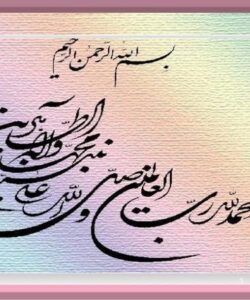 بسم الله الرحمن الرحیم
الحمد لله رب العالمین و صلی الله علی
محمد و آله